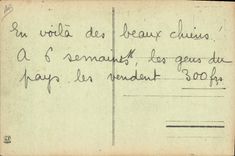 En voilà des beaux chiens!
A 6 semaines, les gens du
pays les vendent 300 frs